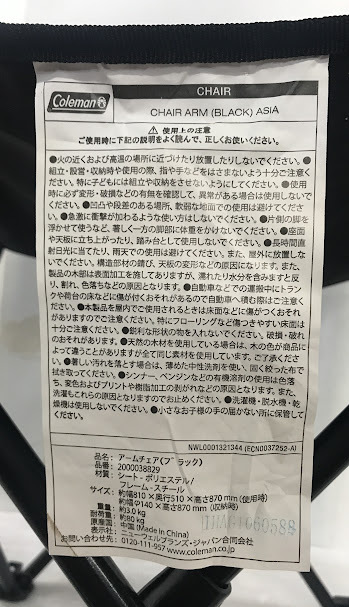 Coleman
CHAIR
CHAIR ARM (BLACK) ASIA
⚠ 使用上の注意
ご使用時に下記の説明をよく読んで、正しくお使いください。
●火の近くおよび高温の場所に近づけたり放置したりしないでください。●
組立・設営・収納時や使用の際、指や手などをはさまないよう十分ご注意く
ださい。特に子どもには組立や収納をさせないようにしてください。●使用
時に必ず変形・破損などの有無を確認して、異常がある場合は使用しないで
ください。●凹凸や段差のある場所、軟弱な地面での使用は避けてくださ
い。●急激に衝撃が加わるような使い方はしないでください。●片側の脚を
浮かせて使うなど、著しく一方の脚部に体重をかけないでください。●座面
や天板に立ち上がったり、踏み台として使用しないでください。●長時間直
射日光に当てたり、雨天での使用は避けてください。また、屋外に放置しな
いでください。構造部材の錆び、天板の変形などの原因になります。また、
製品の木部は表面加工を施してありますが、濡れたり水分を含みますと反
り、割れ、色落ちなどの原因となります。●自動車などでの運搬中にトラン
クや荷台の床などに傷が付くおそれがあるので自動車へ積む際はご注意く
ださい。●本製品を屋内でご使用されるときは床面などに傷がつくおそれ
がありますのでご注意ください。特にフローリングなど傷つきやすい床面は
十分ご注意ください。●鋭利な形状の物を入れないでください。破損・破れ
のおそれがあります。●天然の木材を使用している場合は、木の色が商品に
よって違うことがありますが全て同じ素材を使用しています。ご了承くださ
い。●著しい汚れを落とす場合は、薄めた中性洗剤を使い、固く絞った布で
拭き取ってください。●シンナー、ベンジンなどの有機溶剤の使用は色落
ち、変色およびプリントや樹脂加工の剥がれなどの原因となります。また、
洗濯もこれらの原因となりますのでお止めください。●洗濯機・脱水機・乾
燥機は使用しないでください。●小さなお子様の手の届かない所に保管して
ください。
NWL0001321344 (ECN0037252-A)
品名：アームチェア(ブラック)
品番：2000038829
材質：シート・ポリエステル/
フレーム・スチール
サイズ：約幅810×奥行510×高さ870mm(使用時)
約幅Φ140×高さ870mm(収納時)
重量：約3.0kg
耐荷重：約80kg
原産国：中国 (Made in China)
表示社：ニューウェルブランズ・ジャパン合同会社
お問い合わせ先：0120-111-957 www.coleman.co.jp